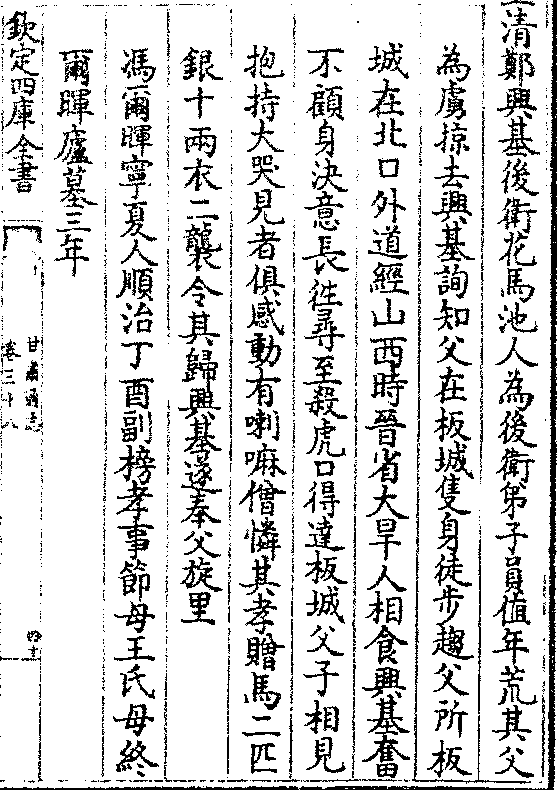 清鄭興基後衛花馬池人為後衛弟子員值年荒其父
為虜掠去興基詢知父在板城隻身徒步趨父所板
城在北口外道經山西時晉省大旱人相食興基奮
不顧身決意長徃尋至殺虎口得達板城父子相見
抱持大哭見者俱感動有喇嘛僧憐其孝贈馬二匹
銀十兩衣二襲令其歸興基遂奉父旋里
馮爾暉寧夏人順治丁酉副榜孝事節母王氏母終
爾暉廬墓三年
欽定四庫全書
甘肅通志
卷三十八
四十